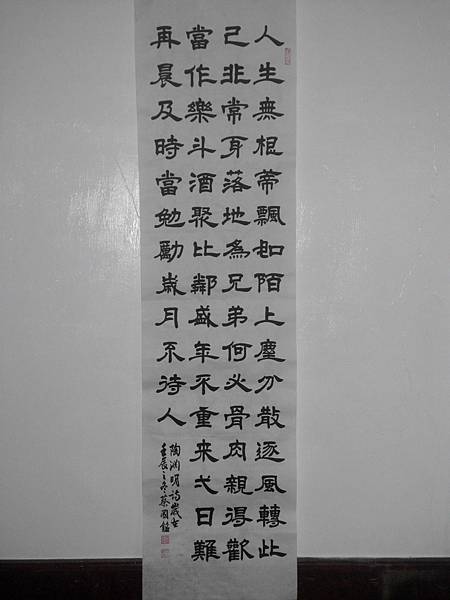 人生無根蒂飄如陌上塵分散逐風轉此
已非常身落地為兄弟何必骨肉親得歡
當作樂斗酒聚比鄰盛年不重来弌日難
再晨及時當勉勵歲月不待人
陶渊明詩歲在
壬辰之冬蔡國